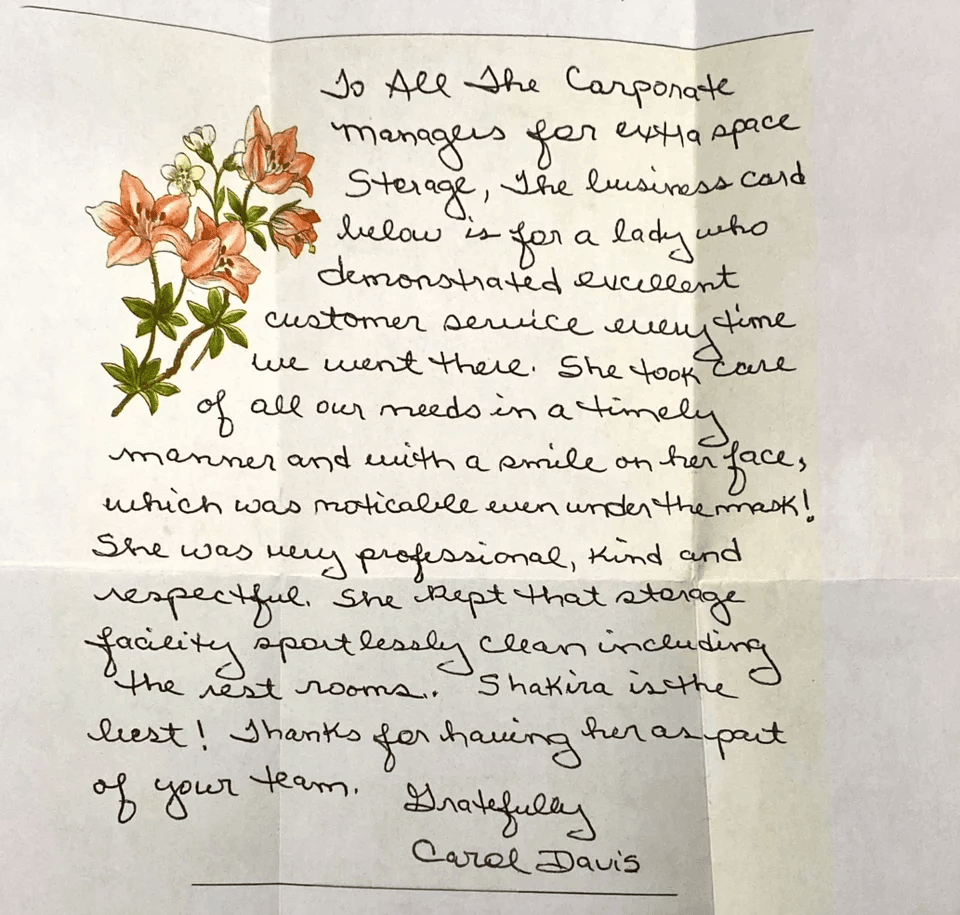 To All The Corporate
managers for extra space
Storage, The business card
below is for a lady who
demonstrated excellent
customer service every time
we went there. She took care
of all our needs in a timely
manner and with a smile on her face,
which was noticable even under the mask!
She was very professional, kind and
respectful. She kept that storage
facility sportlessly clean including
the rest rooms.. Shakira is the
best! Thanks for having her as part
of your team. Gratefully
Carol Davis